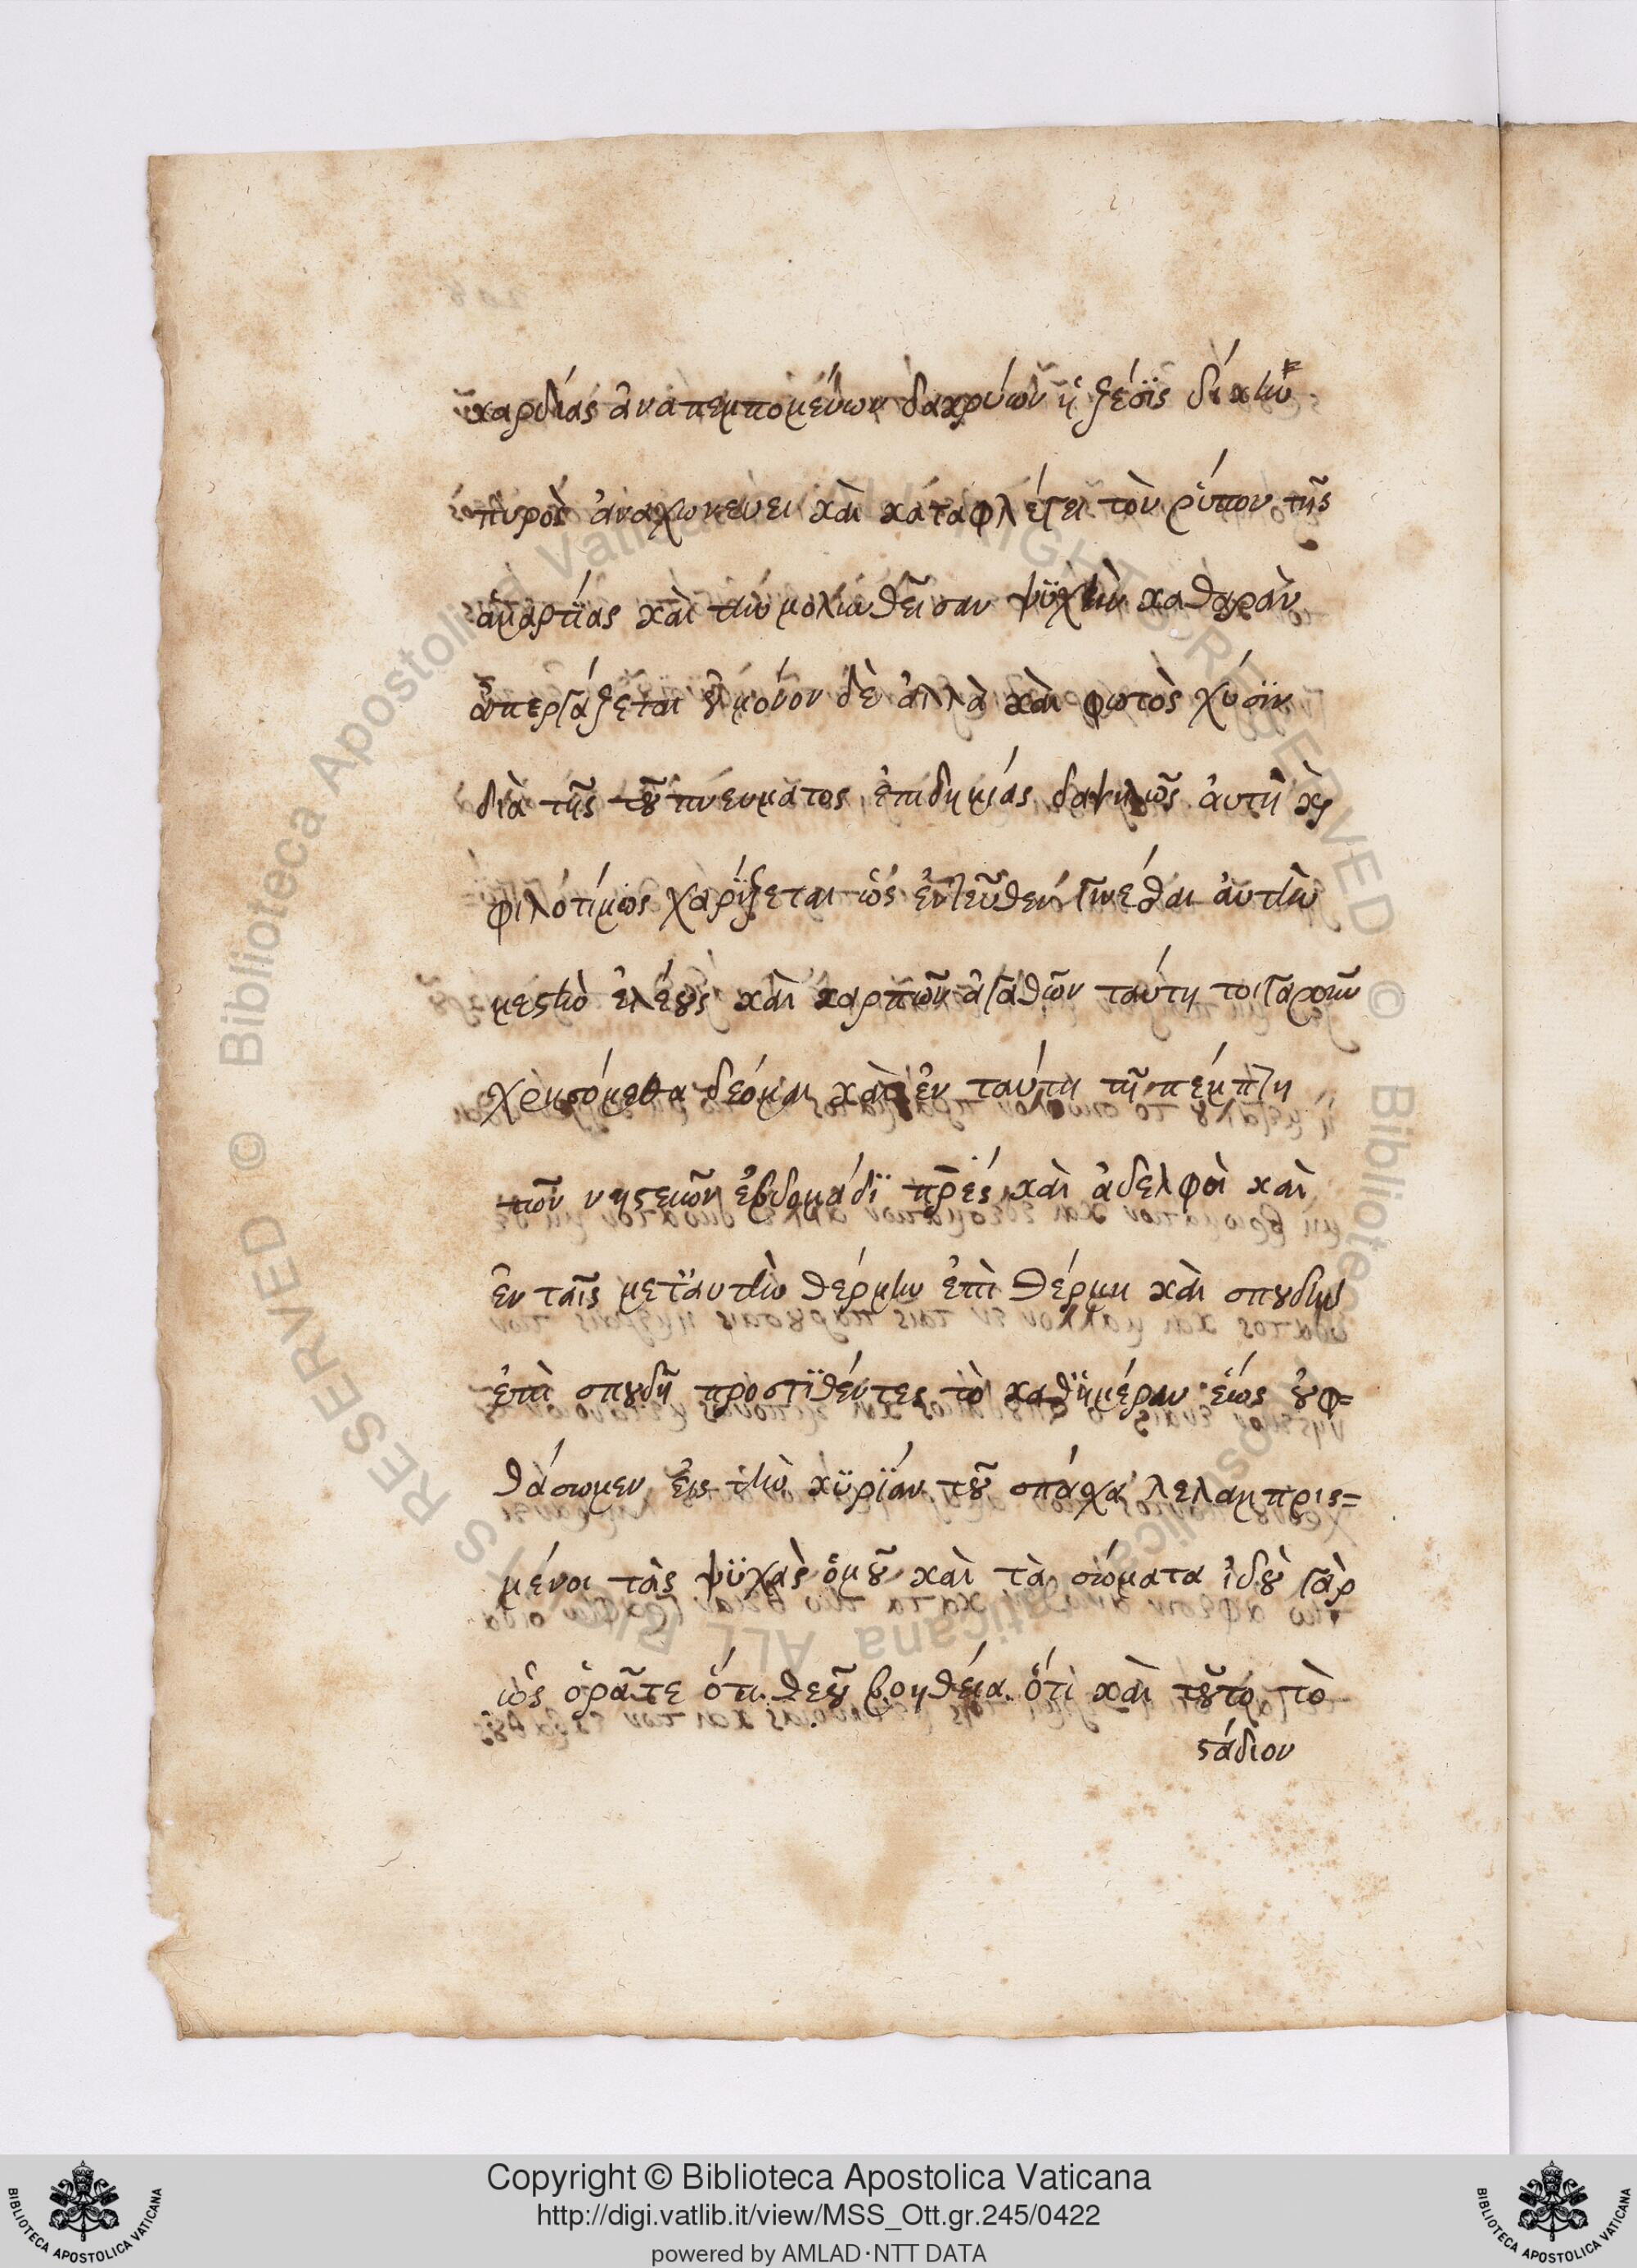 καρδίας ἀναπεμπομένων δακρύων ἡ ζέσϊς δίκην
πυρὸς ἀναχωνεύει καὶ καταφλέγει τὸν ῥύπον τῆς
ἁμαρτίας καὶ τὴν μολυνθεῖσαν ψϋχὴν καθαρὰν
ἀπεργάζεται οὐ μόνον δὲ ἀλλὰ καὶ φωτὸς χύσϊν
διὰ τῆς τοῦ πνεύματος ἐπιδημίας δαψιλῶς αὐτῇ καὶ
φιλοτίμως χαρίζεται ὡς ἐντεῦθεν γίνεσθαι αὐτὴν
μεστὴν ἐλέους καὶ καρπῶν ἀγαθῶν ταύτῃ τοιγαροῦν
χρησόμεθα δέομαι καὶ ἐν ταύτῃ τῇ πέμπτῃ
τῶν νηστειῶν ἑβδομάδϊ πρες καὶ ἀδελφοὶ καὶ
ἐν ταῖς μετ' αὐτὴν θέρμην ἐπὶ θέρμῃ καὶ σπουδὴν
ἐπὶ σπουδῇ προστϊθέντες τὸ καθ' ἡμέραν ἕως οὗ φ=
θάσωμεν εἰς τὴν κϋρϊαν τοῦ σπάσχα λελαμπρισ=
μένοι τὰς ψϋχὰς ὁμοῦ καὶ τὰ σώματα ἰδοὺ γὰρ
ὡς ὁρᾶτε ὅτι θεοῦ βοηθεία ὅτι καὶ τοῦτο τὸ
στάδιον
Copyright © Biblioteca Apostolica Vaticana
http://digi.vatlib.it/view/MSS_Ott.gr.245/0422
powered by AMLAD·NTT DATA